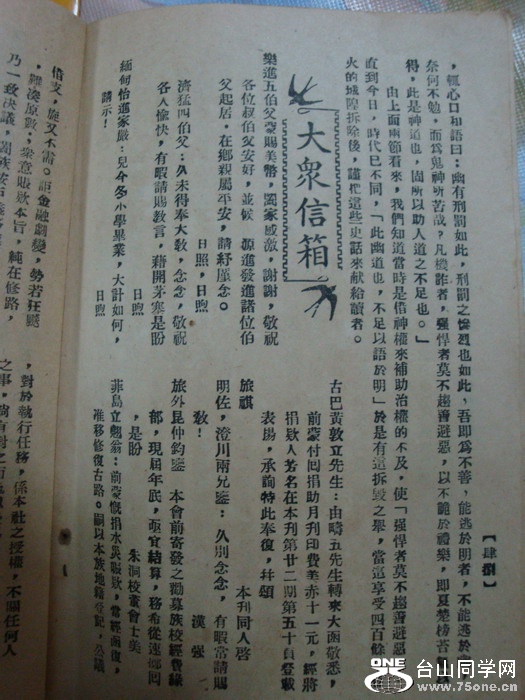 【肆捌】
，輕心口和語曰：幽有刑罰如此，刑罰之慘烈也如此，吾即爲不善，能逃於明者，不能逃於
奈何不勉，而爲鬼神所苦哉？凡機詐者，强悍者莫不趨善避惡，以不範於禮樂，即夏楚榜笞
得，此是神道也，固所以助人道之不足也。」
由上面兩節看來，我們知道當時是借神權來補助治權的不及，使「强悍者莫不趨善避惡
直到今日，時代已不同，「此幽道也，不足以語於明」於是有這拆毁之舉，當這享受四百餘
火的城隍拆除後，謹把這些史話來献給讀者。
大衆信箱
樂進五伯父蒙賜美幣，闔家感激，謝謝，敬祝
各位叔伯父安好，並候 源進發進諸位伯
父起居，在鄉親屬平安，請紓厪念。
日照，日煦
濟猛四伯父：久未得奉大敎，念念，敬祝
各人愉快，有暇請賜敎言，藉開茅塞是盼
日照，日煦
緬甸怡進家嚴：兒今冬小學畢業，大計如何，
請示！
日照
古巴黄敦立先生：由疇五先生轉來大函敬悉，
前蒙付囘捐助月刋印費美赤十一元，經將
捐欵人芳名在本刋廿二期第五十頁登載
表揚，承詢特此奉復，幷頌
旅祺
本刋同人啓
明佐，澄川兩兄鑒：久別念念，有暇常請賜
敎！
漢强
旅外昆仲鈞鑒 本會前寄發之勸募族校經費緣
部，現屆年底，亟宜結算，務希從速擲囘
，是盼
朱洞校董會士美
菲島立魁翁：前蒙慨捐水災賑欵，當經函復
准移修復古路。嗣以本族地籍登記，公議
借支，
，湊原數；衆意賑欵本旨，純在修路，
乃一致决議，
，對於執行任務，係本社之授權，不關任何人
台山同学网
www.75one.cn
ONE